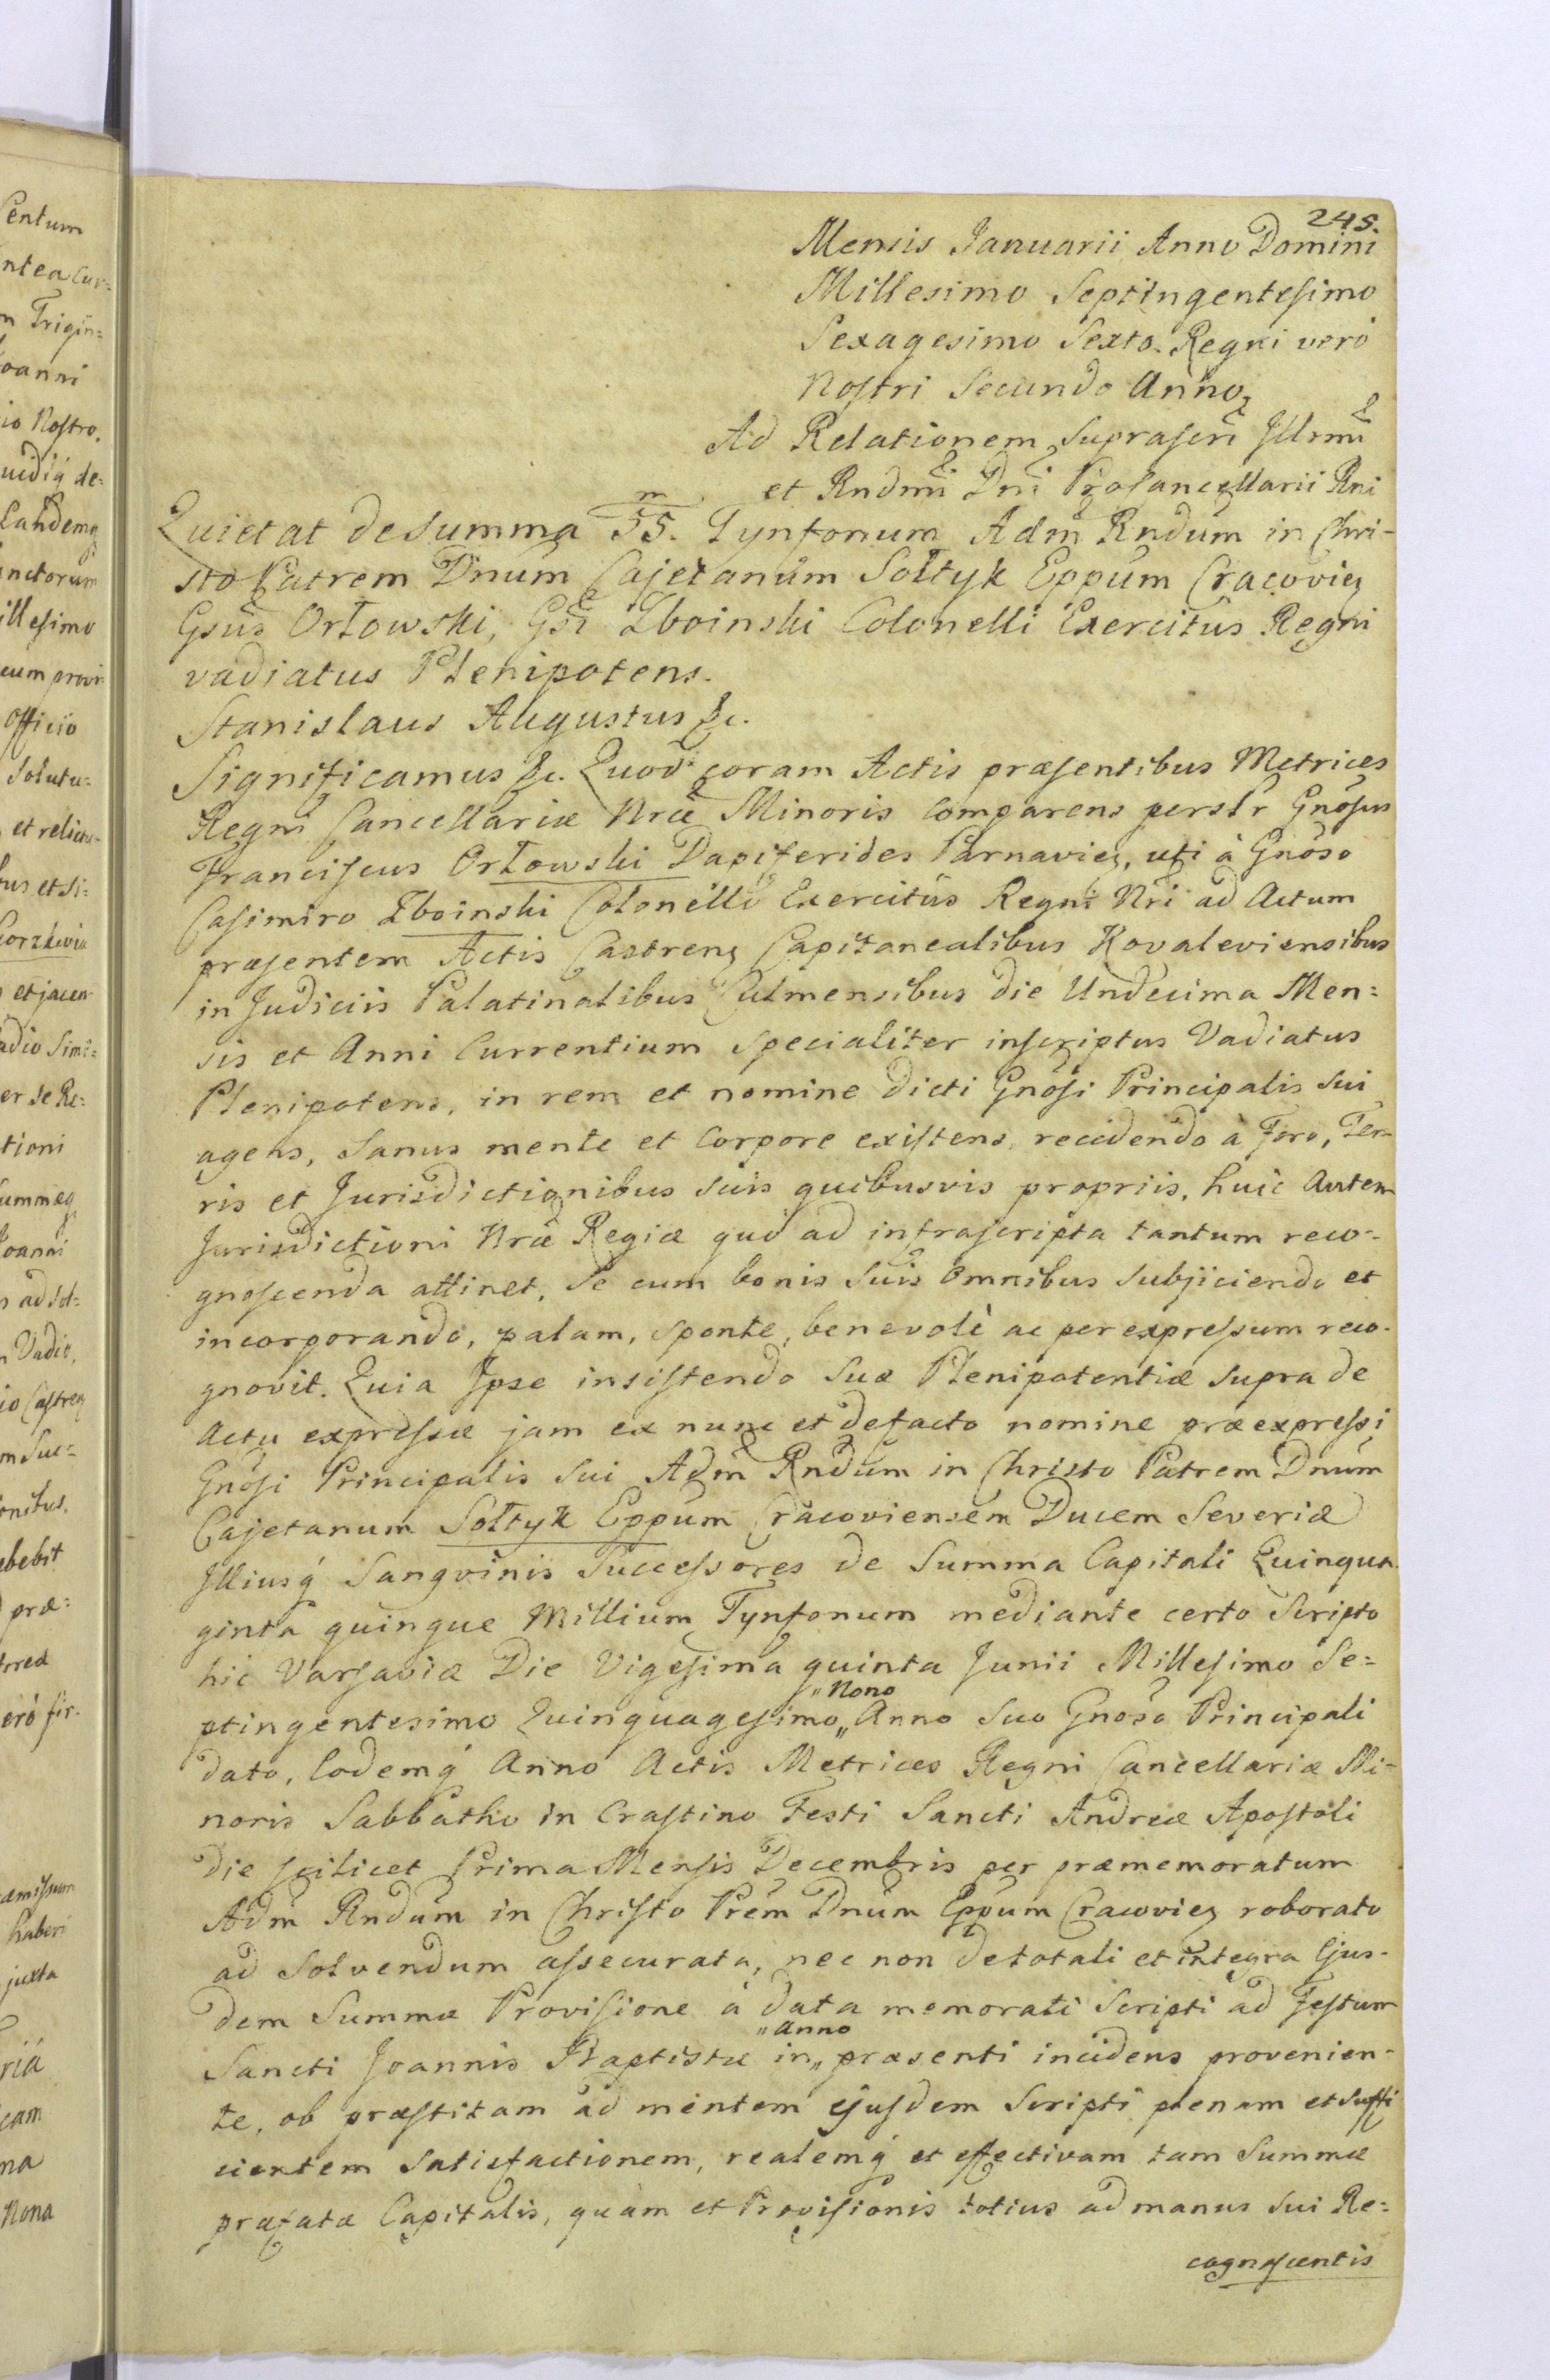 245.
Mensis Januarii Anno Domini
Millesimo Septingentesimo
Sexagesimo Sexto. Regni verò
Nostri Secundo Anno,
Ad Relationem Suprascri Jllrmi
et Rndmi Dni Procancellarii Rni
Quietat de Summa 55. m Tynfonum Adm Rndum in Chri-
sto Patrem Dnum Cajetanum Sołtyk Eppum Cracovien
Gsus Orłowski, Gsi Zboinski Colonelli Exercitus Regni
vadiatus Plenipotens.
Stanislaus Augustus &c.
Significamus &c. Quod coram Actis præsentibus Metrices
Regni Cancellariæ Nræ Minoris comparens perslr Gnosus
Franciscus Orłowski Dapiferides Parnavien, uti à Gnoso
Casimiro Zboinski Colonello Exercitus Regni Nri ad Actum
præsentem Actis Castren Capitanealibus Kovaleviensibus
in Judiciis Palatinalibus Culmensibus die Undecima Men:
sis et Anni Currentium specialiter inscriptus Vadiatus
Plenipotens, in rem et nomine dicti Gnosi Principalis sui
agens, sanus mente et corpore existens, recedendo à Foro, Ter-
ris et Jurisdictionibus suis quibusvis propriis, huic Autem
Jurisdictioni Nræ Regiæ quo ad infrascripta tantum reco-
gnoscenda attinet, se cum bonis suis omnibus subjiciendo et
incorporando, palam, sponte, benevolè ac per expressum reco-
gnovit. Quia Ipse insistendo suæ Plenipotentiæ supra de
actu expressæ jam ex nunc et defacto nomine præexpressi
Gnosi Principalis sui Adm Rndum in Christo Patrem Dnum
Cajetanum Sołtyk Eppum Cracoviensem Ducem Severiæ
Jlliusq Sangvinis Successores de Summa Capitali Quinqua-
ginta quinque Millium Tynfonum mediante certo scripto
hic Varsaviæ Die Vigesima quinta Junii Millesimo Se=
ptingentesimo Quinquagesimo „Nono Anno suo Gnoso Principali
dato, Eodemq Anno Actis Metrices Regni Cancellariæ Mi-
noris Sabbatho in Crastino Festi Sancti Andreæ Apostoli
die scilicet Prima Mensis Decembris per præmemoratum
Adm Rndum in Christo Prem Dnum Eppum Cracovien roborato
ad solvendum assecurata, nec non de totali et integra Ejus-
dem Summæ Provisione à data memorati scripti ad Festum
Sancti Joannis Baptistæ in „Anno præsenti incidens provenien-
te, ob præstitam ad mentem ejusdem scripti plenam et suffi
cientem satisfactionem, realemq et effectivam tam Summæ
præfatæ Capitalis, quàm et Provisionis totius ad manus sui Re=
cognoscentis